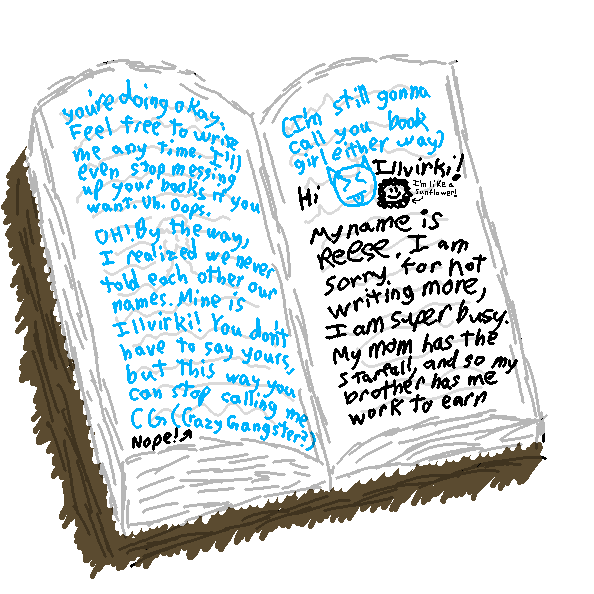 you're doing okay.
Feel free to write
me any time. I'll
even stop messing
up your books if you
want. Uh. Oops.
OH! By the way,
I realized we never
told each other our
names. Mine is
Illvirki! You don't
have to say yours,
but this way you
can stop calling me
CG (Crazy Gangster?)
Nope!
(I'm still gonna
call you book
girl either way)
Hi Illvirki!
I'm like a
sunflower!
My name is
Reese. I am
sorry for not
writing more,
I am super busy.
My mom has the
Starfall, and so my
brother has me
work to earn